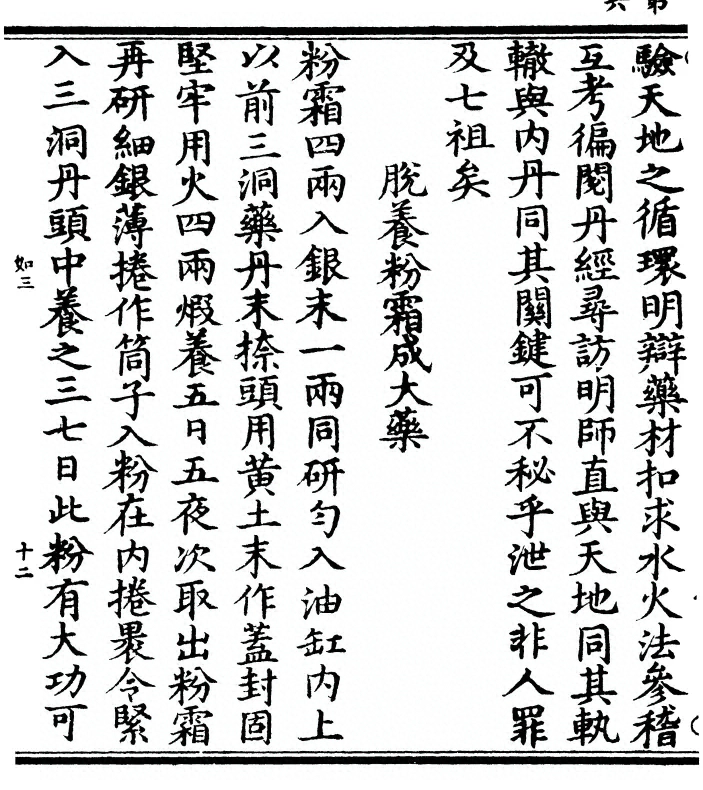 驗天地之循環明辯藥材扣求水火法參稽
互考徧閱丹經尋訪明師直與天地同其軌
轍與内丹同其關鍵可不秘乎泄之非人罪
及七祖矣
脫養粉霜成大藥
粉霜四兩入銀末一兩同研勻入油缸内上
以前三洞藥丹末捺頭用黄土末作蓋封固
堅牢用火四兩煆養五日五夜次取出粉霜
再研細銀薄捲作筒子入粉在内捲褁令緊
入三洞丹頭中養之三七日此粉有大功可
如三
十二